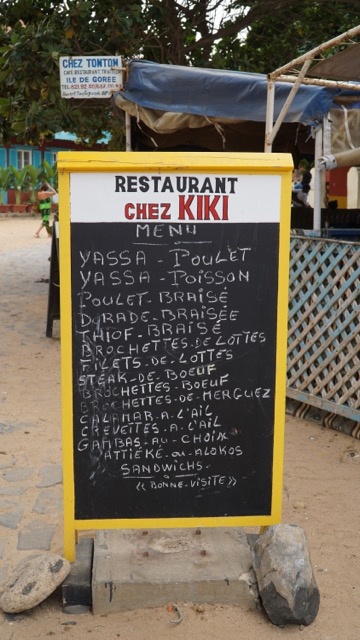 CHEZ TONTOM
CAFE RESTAURANT
ILE DE GOREE
RESTAURANT
CHEZ KIKI
MENU
YASSA - POULET
YASSA - POISSON
POULET - BRAISÉ
DORADE - BRAISÉE
THIOF - BRAISÉ
BROCHETTES.DE LOTTES
FILETS.DE.LOTTES
STEAK-DE-BOEUF
BROCHETTES-BOEUF
BROCHETTES-DE-MERGUEZ
CALAMAR.A.L'AIL
CREVEITES.A.L'AIL
GAMBAS-AU-CHOIX
ATTIÉKÉ.ou-ALOKOS
SANDWICHS.
((BONNE-VISITE))